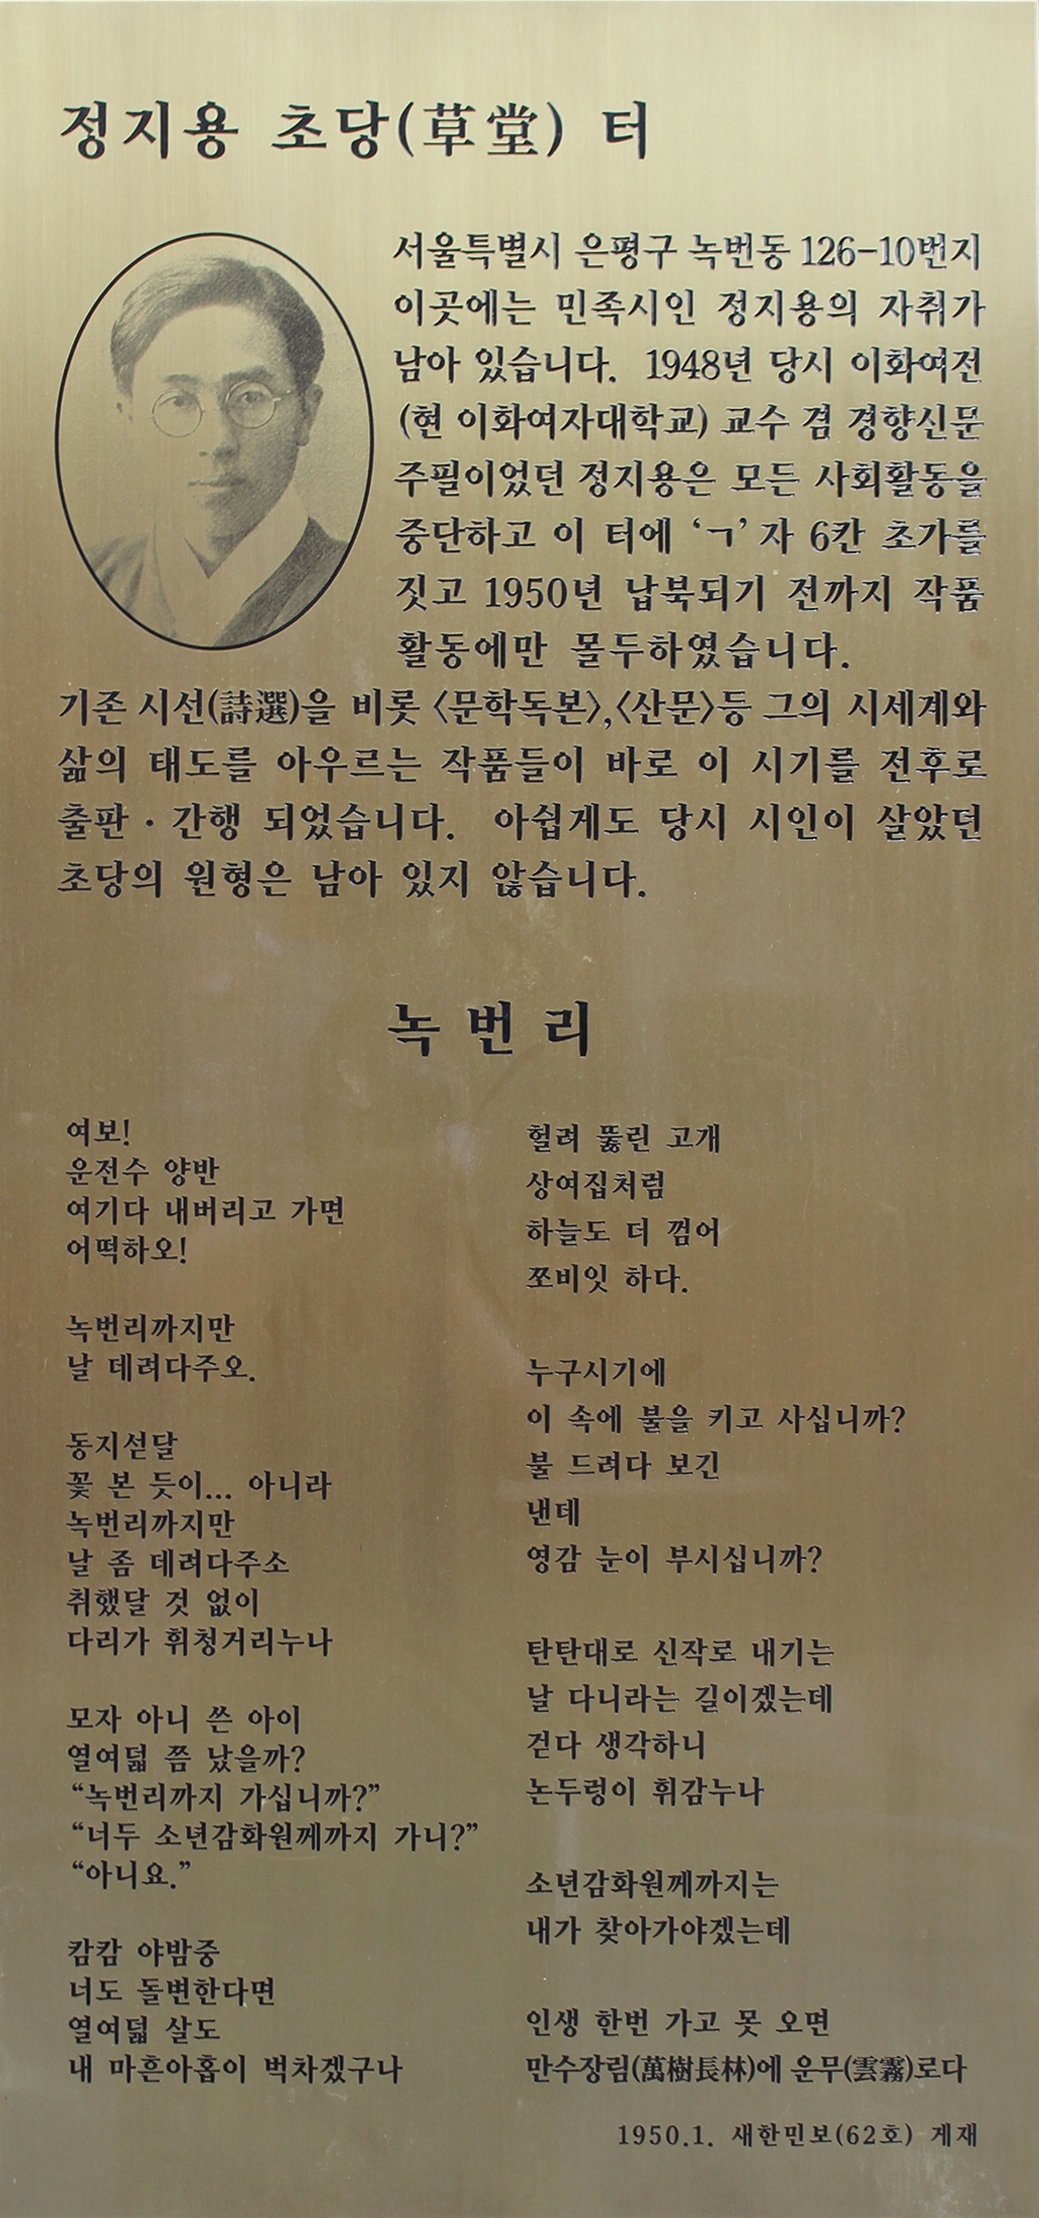 정지용 초당(草堂) 터
서울특별시 은평구 녹번동 126-10번지
이곳에는 민족시인 정지용의 자취가
남아 있습니다. 1948년 당시 이화여전
(현 이화여자대학교) 교수 겸 경향신문
주필이었던 정지용은 모든 사회활동을
중단하고 이 터에 ‘ㄱ’자 6칸 초가를
짓고 1950년 납북되기 전까지 작품
활동에만 몰두하였습니다.
기존 시선(詩選)을 비롯 〈문학독본〉,〈산문〉등 그의 시세계와
삶의 태도를 아우르는 작품들이 바로 이 시기를 전후로
출판·간행 되었습니다. 아쉽게도 당시 시인이 살았던
초당의 원형은 남아 있지 않습니다.
녹번리
여보!
운전수 양반
여기다 내버리고 가면
어떡하오!
녹번리까지만
날 데려다주오.
동지섣달
꽃 본 듯이... 아니라
녹번리까지만
날 좀 데려다주소
취했달 것 없이
다리가 휘청거리누나
모자 아니 쓴 아이
열여덟 쯤 났을까?
“녹번리까지 가십니까?”
“너두 소년감화원께까지 가니?”
“아니요.”
캄캄 야밤중
너도 돌변한다면
열여덟 살도
내 마흔아홉이 벅차겠구나
헐려 뚫린 고개
상여집처럼
하늘도 더 껌어
쪼비잇 하다.
누구시기에
이 속에 불을 키고 사십니까?
불 드려다 보긴
낸데
영감 눈이 부시십니까?
탄탄대로 신작로 내기는
날 다니라는 길이겠는데
걷다 생각하니
논두렁이 휘감누나
소년감화원께까지는
내가 찾아가야겠는데
인생 한번 가고 못 오면
만수장림(萬樹長林)에 운무(雲霧)로다
1950.1. 새한민보(62호) 게재